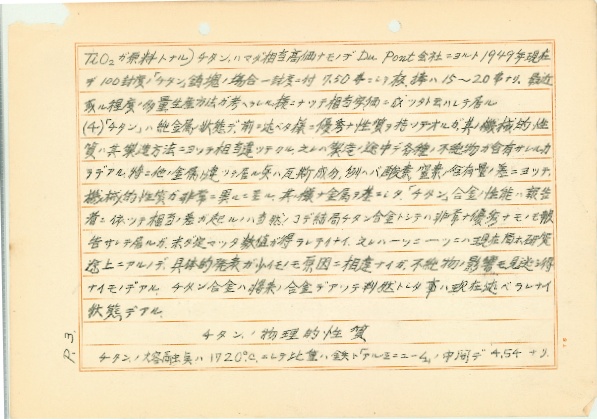 TiO₂ガ原料トナル)チタン.ハマダ相当高価ナモノデ Du Pont会社ニヨルト1949年現在
デ 100封度ノ「チタン」鋳塊ノ場合一封度ニ付 7.50弗ニシテ板棒ハ 15〜20弗ナリ. 最近
或ル程度ノ多量生産方法ガ考ヘラレ様ニナツテ相当安価ニ ツタト云ハレテ居ル
(4)「チタン」ハ純金属ノ状態デ前ニ述ベタ様ニ優秀ナ性質ヲ持ツテオルガ.其ノ機械的性
質ハ其製造方法ニヨツテ相当違ツテクル.之レハ製造ノ途中デ各種ノ不純物ガ含有サレルカ
ラデアル.特ニ他ノ金属ト違ツテ居ル点ハ瓦斯成分,例ヘバ酸素,窒素ノ含有量ノ差ニヨツテ.
機械的性質ガ非常ニ異ルニ至ル.其ノ様ナ金属ヲ基ニシタ.「チタン」合金ノ性能ハ報告
者ニ依ツテ相当ノ差ガ起ルノハ当然ノコデ結局チタン合金トシテハ非常ナ優秀ナモノモ報
告サレテ居ルガ.未ダ定マツタ数値ガ得ラレテイナイ.之レハ一ツニ ーツニハ現在尚ホ研究
途上ニアルノデ.具体的発表ガ少イノモ原因ニ相違ナイガ.不純物ノ影響モ見逃シ得
ナイモノデアル. チタン合金ハ将来ノ合金デアツテ判然トシタ事ハ現在述ベラレナイ
状態デアル.
チタン.ノ物理的性質
チタン.ノ 点ハ 1720°C.ニシテ比重ハ鉄ト「アルミニューム」ノ中間デ 4.54 ナリ.
P.3.